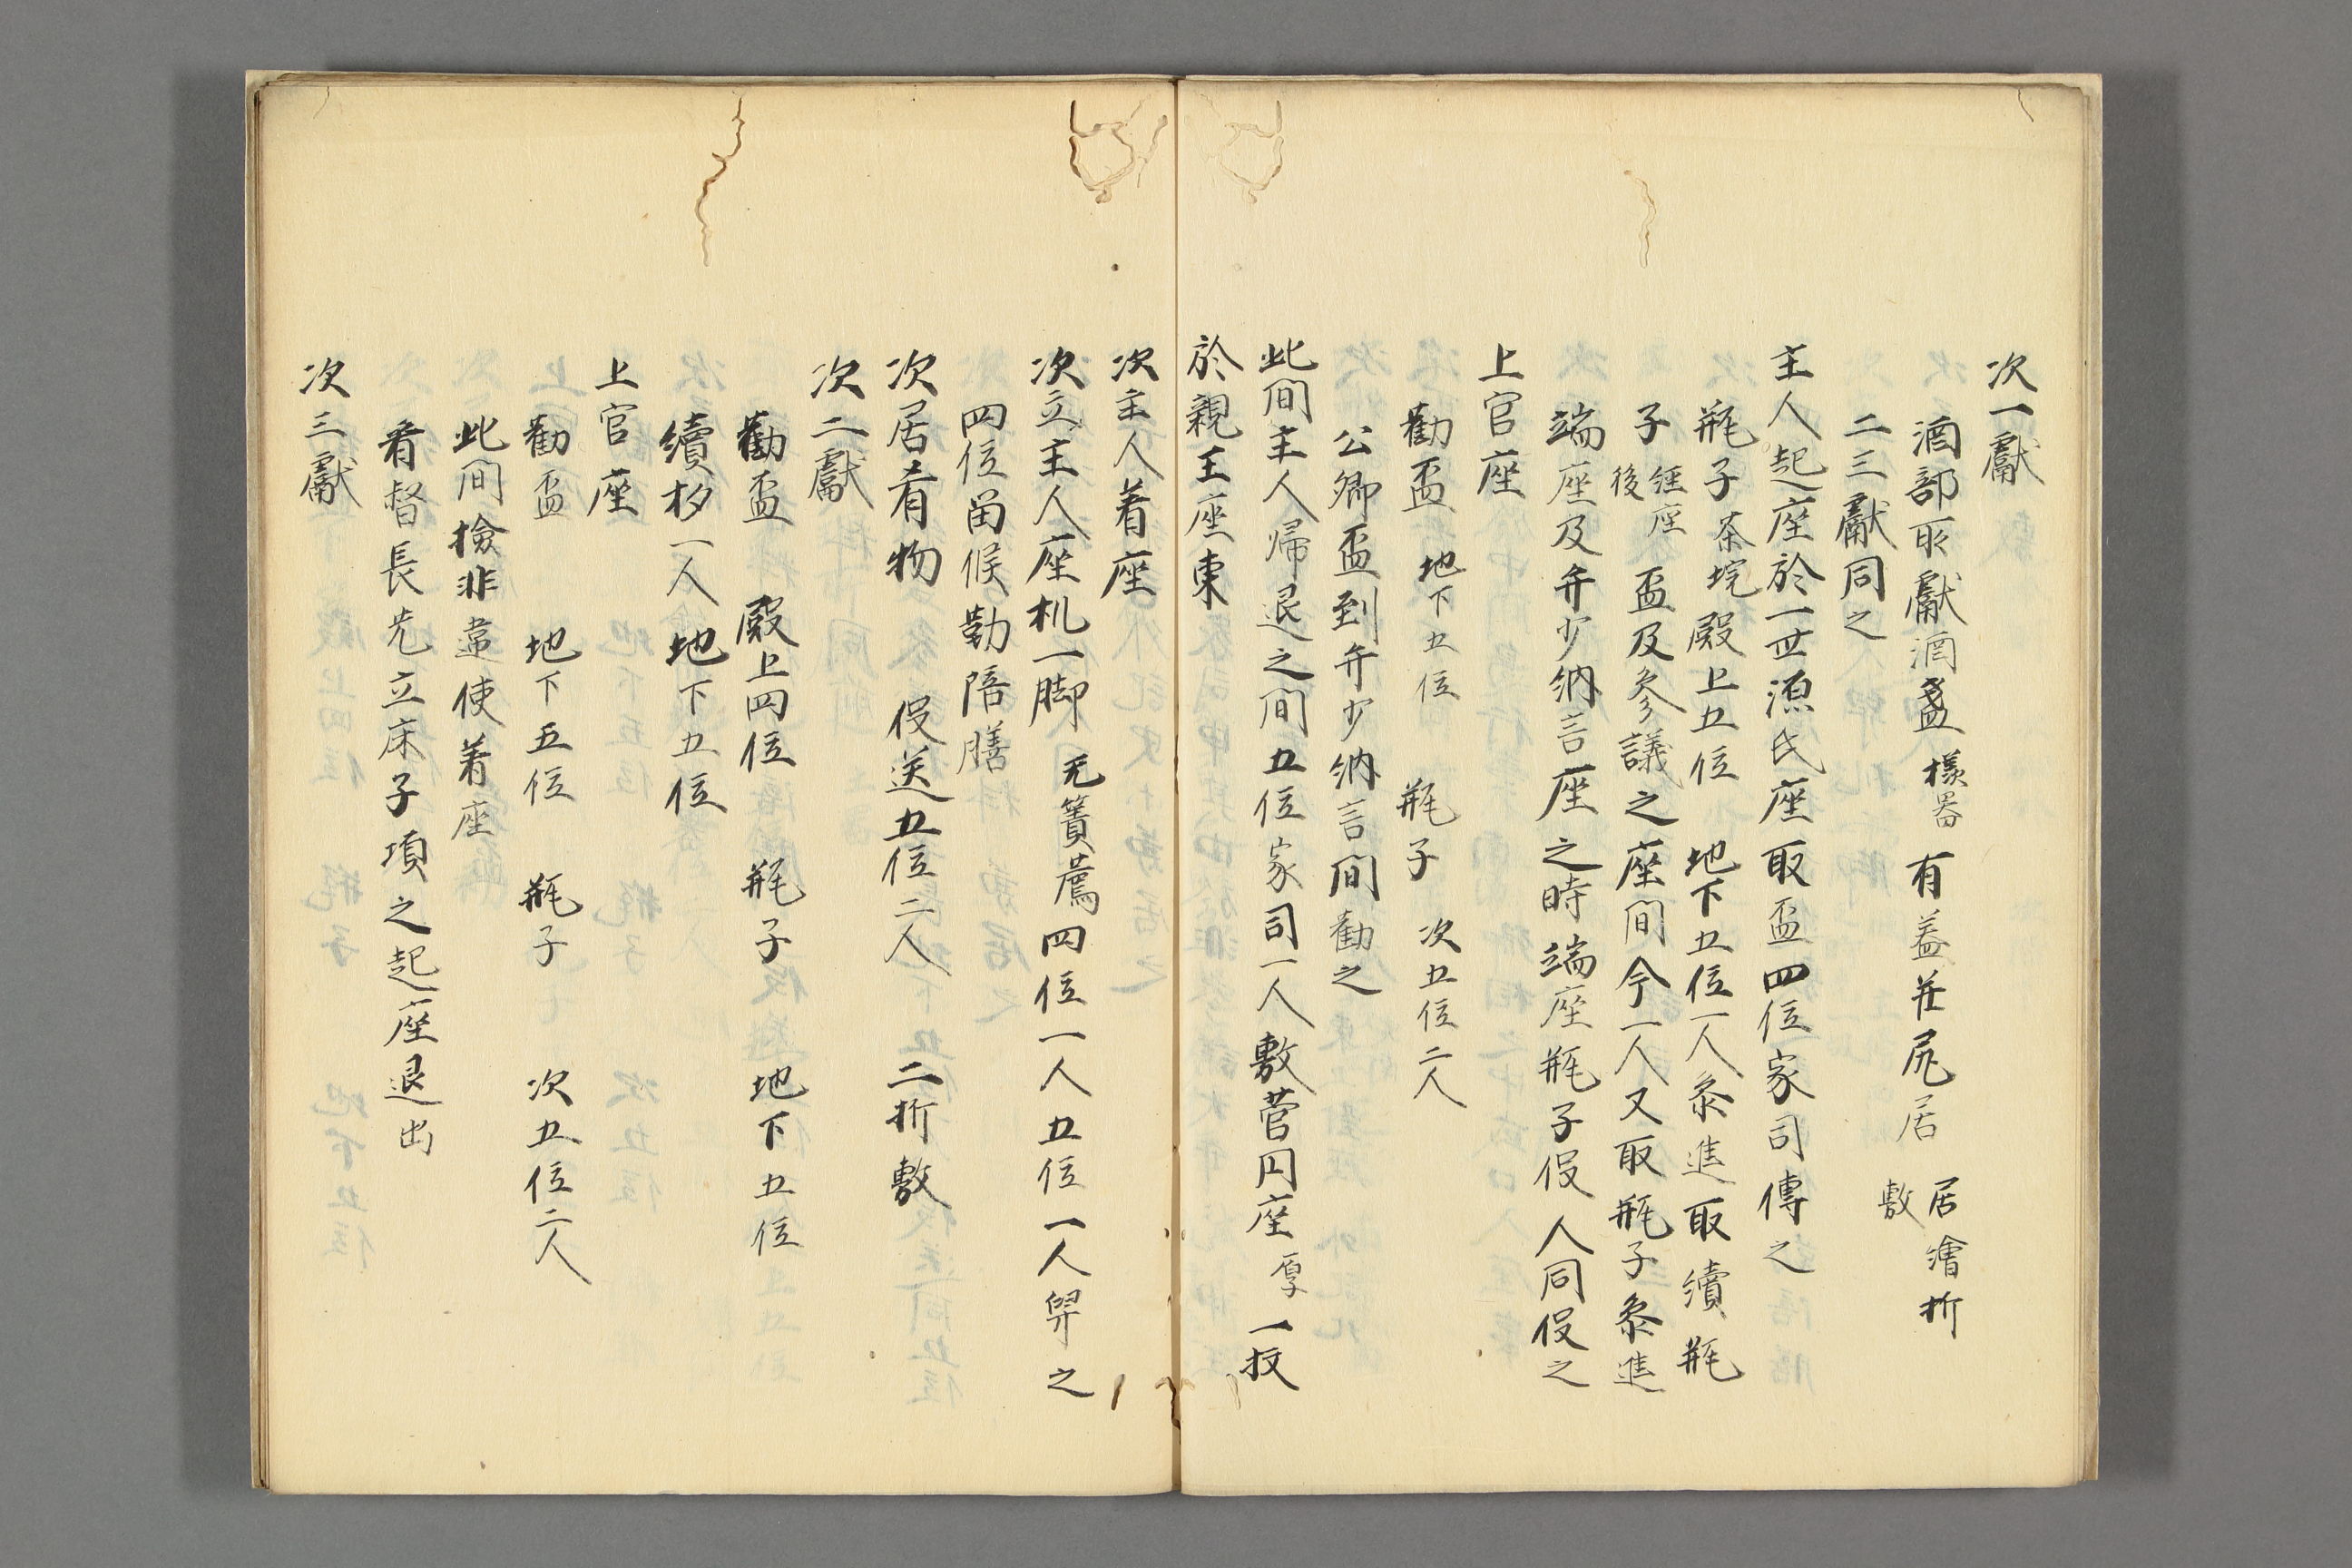 次一獻
酒部取獻酒盞 樣器 有蓋并尻居 居繪折敷
二三獻同之
主人起座於一世源氏座取盃四位家司傳之
瓶子茶垸殿上五位 地下五位一人参進取續瓶
子 經座後 盃及参議之座間今一人又取瓶子参進
端座及弁少納言座之時端座瓶子役人同役之
上官座
勸盃 地下五位 瓶子 次五位二人
公卿盃到弁少納言間勸之
此間主人帰退之間五位家司一人敷菅円座 厚 一枚
於親王座東
次主人着座
次立主人座机一脚 无簀薦 四位一人五位一人舁之
四位留候勤陪膳
次居肴物 役送五位二人 二折敷
次二獻
勸盃 殿上四位 瓶子 地下五位
續杓一人地下五位
上官座
勸盃 地下五位 瓶子 次五位二人
此間撿非違使着座
看督長先立床子項之起座退出
次三獻